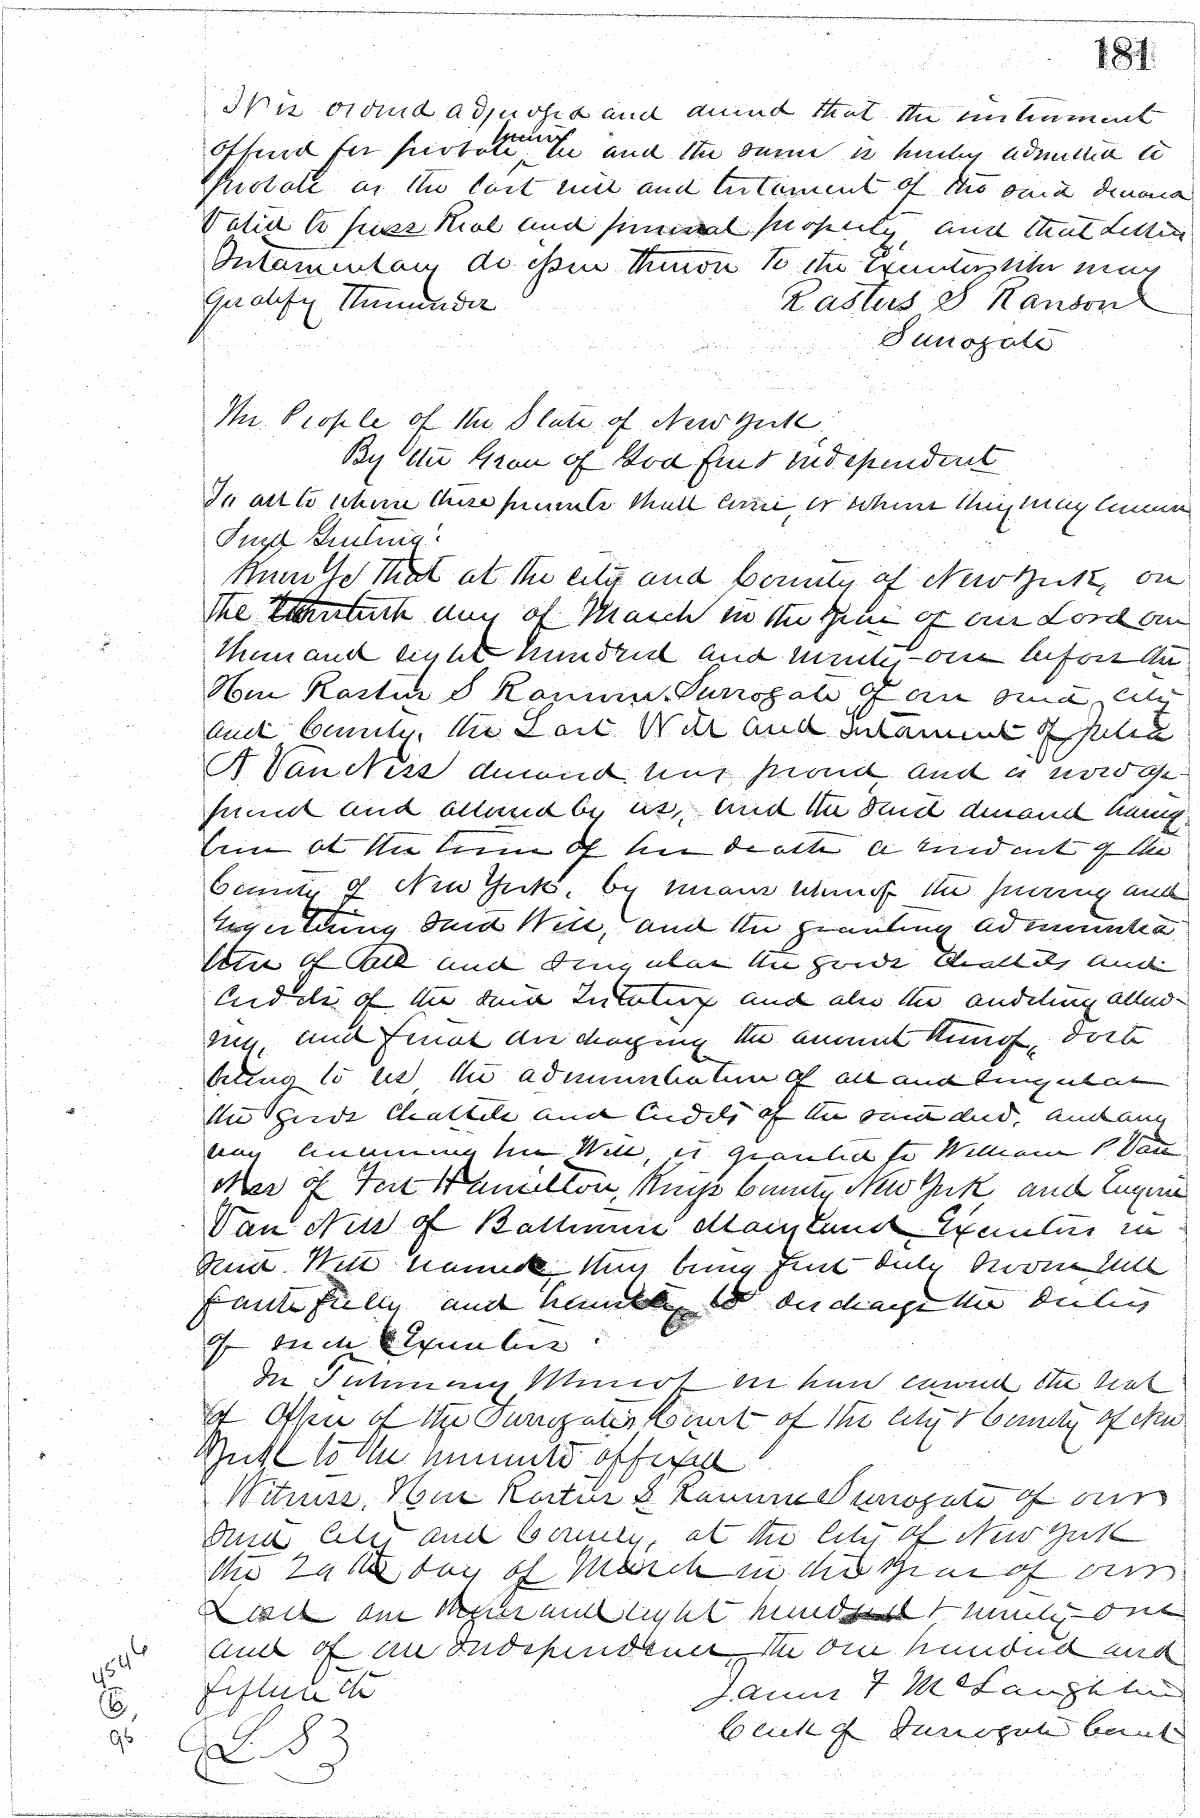 181
It is ordered adjudged and decreed that the instrument
offered for probate herein be and the same is hereby admitted to
probate as the last will and testament of the said deceased
Valid to pass Real and personal property, and that Letters
Testamentary do issue thereon to the Executors who may
qualify thereunder
Rastus S Ransom
Surrogate
The People of the State of New York,
By the Grace of God free & independent
To all to whom these presents shall come, or whom they may concern
Send Greeting:
Know Ye that at the city and County of New York, on
the day of March in the year of our Lord one
thousand eight hundred and ninety-one before the
Hon Rastus S Ransom, Surrogate of our said city
and County, the Last Will and Testament of Julia
A Van Ness deceased was proved, and is now ap-
proved and allowed by us, and the said deceased having
been at the time of her death a resident of the
County of New York, by means whereof the proving and
registering said Will, and the granting administra
tion of all and singular the goods Chattels and
Credits of the said Testatrix and also the auditing allow-
ing, and final discharging the account thereof, doth
belong to us the administration of all and singular
the goods Chattels and Credits of the said decd, and any
way concerning her Will, is granted to William P Van
Ness of Fort Hamilton, Kings County New York, and Eugene
Van Ness of Baltimore Maryland, Executors in
said Will named they being first duly sworn well
faithfully and honestly to discharge the duties
of such Executors.
In Testimony Whereof we have caused the seal
of Office of the Surrogates Court of the City & County of New
York to be hereunto affixed
Witness, Hon Rastus S Ransom Surrogate of our
said City and County, at the City of New York
the 20th day of March in the year of our
Lord one thousand eight hundred & ninety-one
and of our Independence the one hundred and
fifteenth
James F McLaughlin
Clerk of Surrogate Court
L. S 3
4546
96